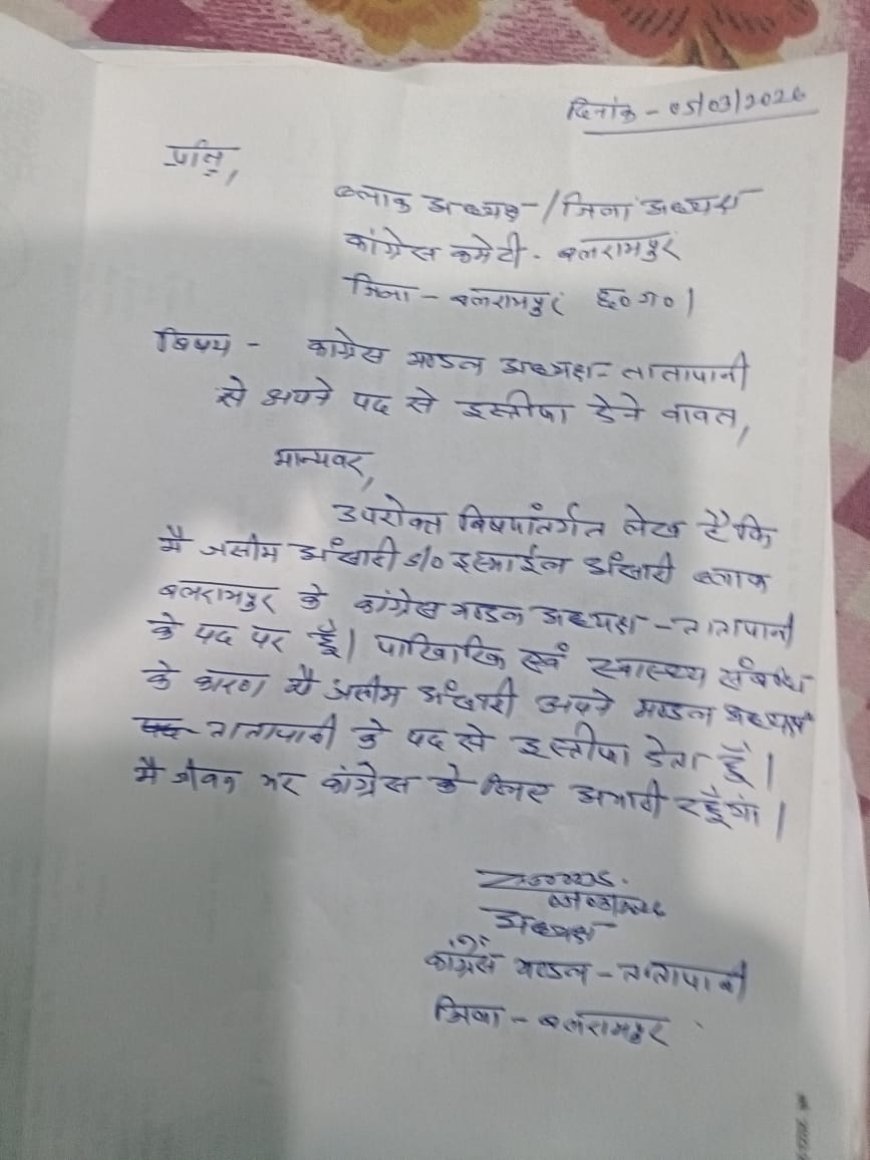 दिनांक - 05/03/2026
प्रति,
ब्लाक अध्यक्ष / जिला अध्यक्ष
कांग्रेस कमेटी - बलरामपुर
जिला - बलरामपुर छ०ग०।
विषय - कांग्रेस मण्डल अध्यक्ष - तातापानी
से अपने पद से इस्तीफा देने वावत,
मान्यवर,
उपरोक्त विषयांतर्गत लेख है कि
मै अंसारी s/o इस्माईल अंसारी ब्लाक
बलरामपुर के कांग्रेस मण्डल अध्यक्ष - तातापानी
के पद पर हूँ। पारिवारिक एवं स्वास्थ्य संबंधी
के कारण मै अंसारी अपने मण्डल अध्यक्ष
तातापानी के पद से इस्तीफा देता हूँ।
मै जीवन भर कांग्रेस के लिए अभारी रहूँगां।
अध्यक्ष
कांग्रेस मण्डल - तातापानी
जिला - बलरामपुर